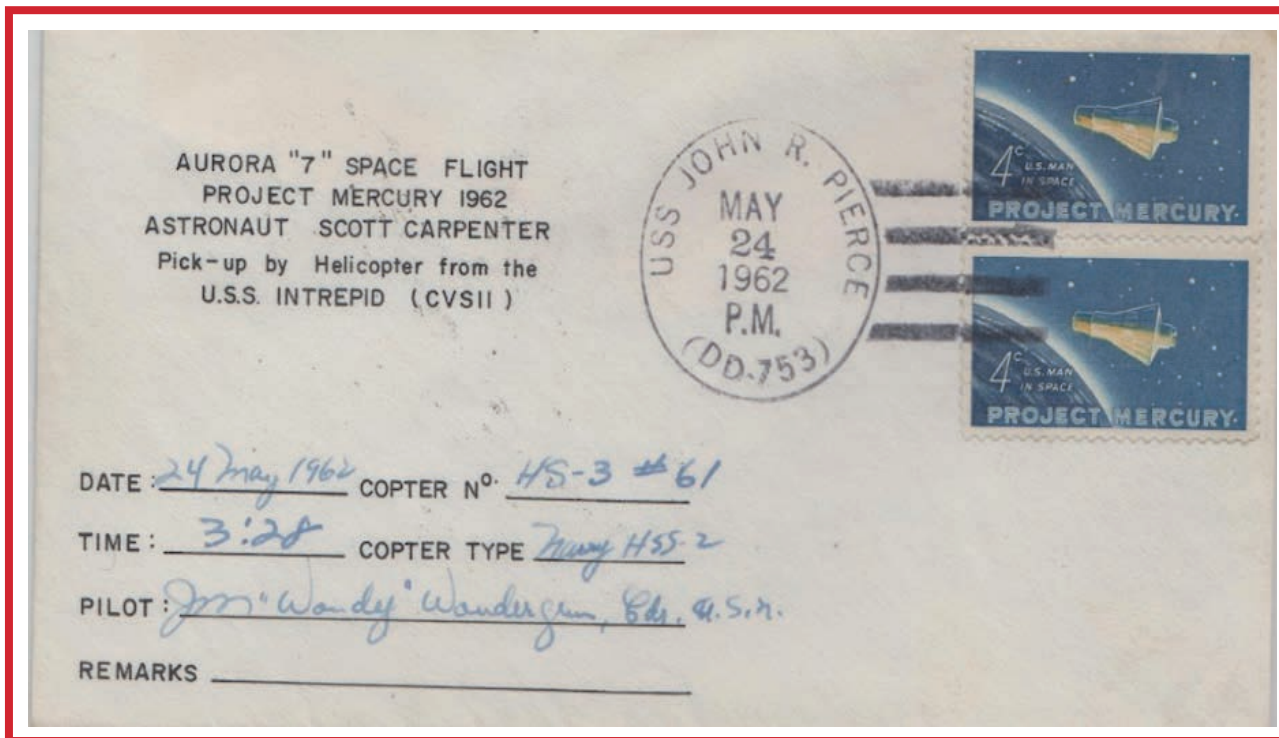 AURORA "7" SPACE FLIGHT
PROJECT MERCURY 1962
ASTRONAUT SCOTT CARPENTER
Pick-up by Helicopter from the
U.S.S. INTREPID (CVSII)
USS JOHN R. PIERCE
MAY
24
1962
P.M.
(DD-753)
4c
U.S. MAN
IN SPACE
PROJECT MERCURY
4c
U.S. MAN
IN SPACE
PROJECT MERCURY
DATE: 24 May 1962 COPTER No. HS-3 #61
TIME: 3:28 COPTER TYPE Navy HSS-2
PILOT: "Wondy" Cdr. U.S.N.
REMARKS